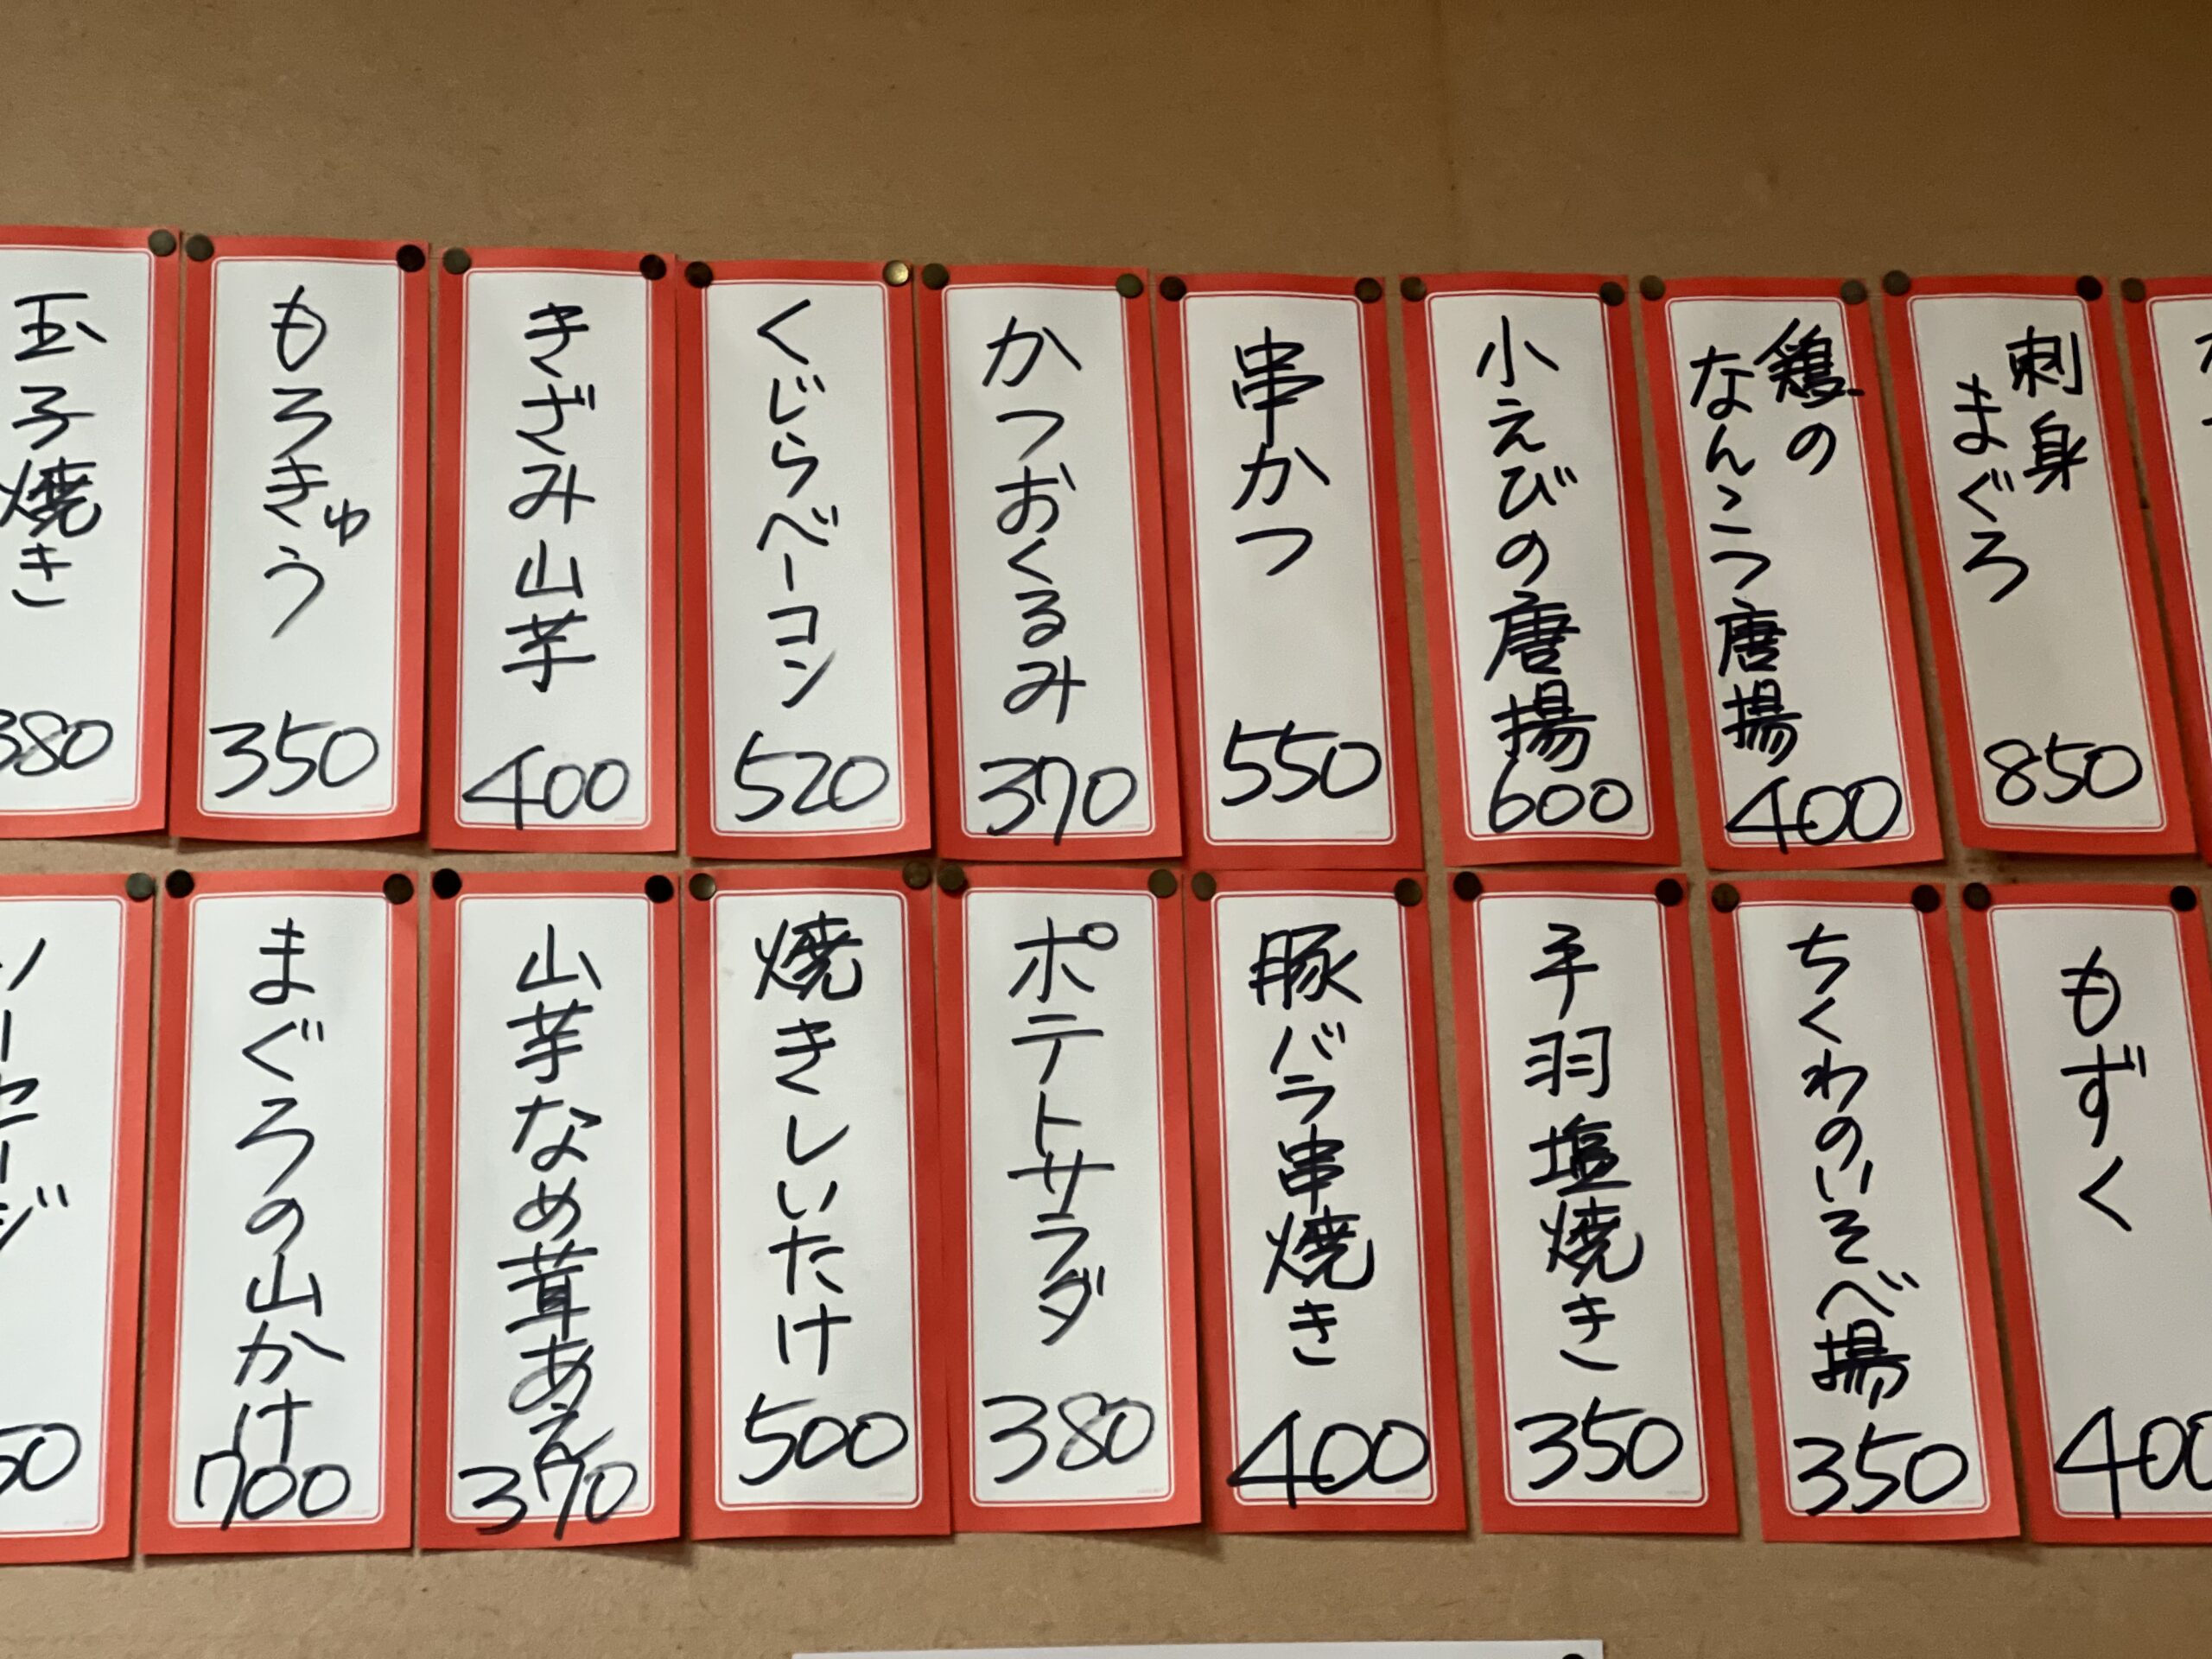 刺身
まぐろ
850
鶏の
なんこつ唐揚
400
小えびの唐揚
600
串かつ
550
かつおくるみ
370
くじらベーコン
520
きざみ山芋
400
もろきゅう
350
玉子焼き
380
もずく
400
ちくわのいそべ揚
350
手羽塩焼き
350
豚バラ串焼き
400
ポテトサラダ
380
焼きしいたけ
500
山芋なめ茸あえ
370
まぐろの山かけ
700
ソーセージ
50